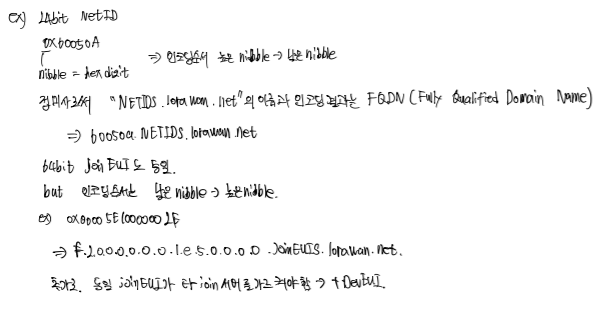 ex) 24bit NetID
0x60050A
nibble = hex digit ⇒ 인코딩순서 높은 nibble → 낮은 nibble
접미사로서 "NETIDS.lorawan.net"의 이름과 인코딩결과는 FQDN (Fully Qualified Domain Name)
⇒ 60050a.NETIDS.lorawan.net
64bit Join EUI도 동일.
but 인코딩순서는 낮은 nibble → 높은 nibble.
ex) 0x00005E100000002F
⇒ f.2.0.0.0.0.0.0.1.e.5.0.0.0.0.JoinEUIS.lorawan.net.
추가로. 동일 joinEUI가 타 join서버로 가고 져야 함 → + DevEUI.